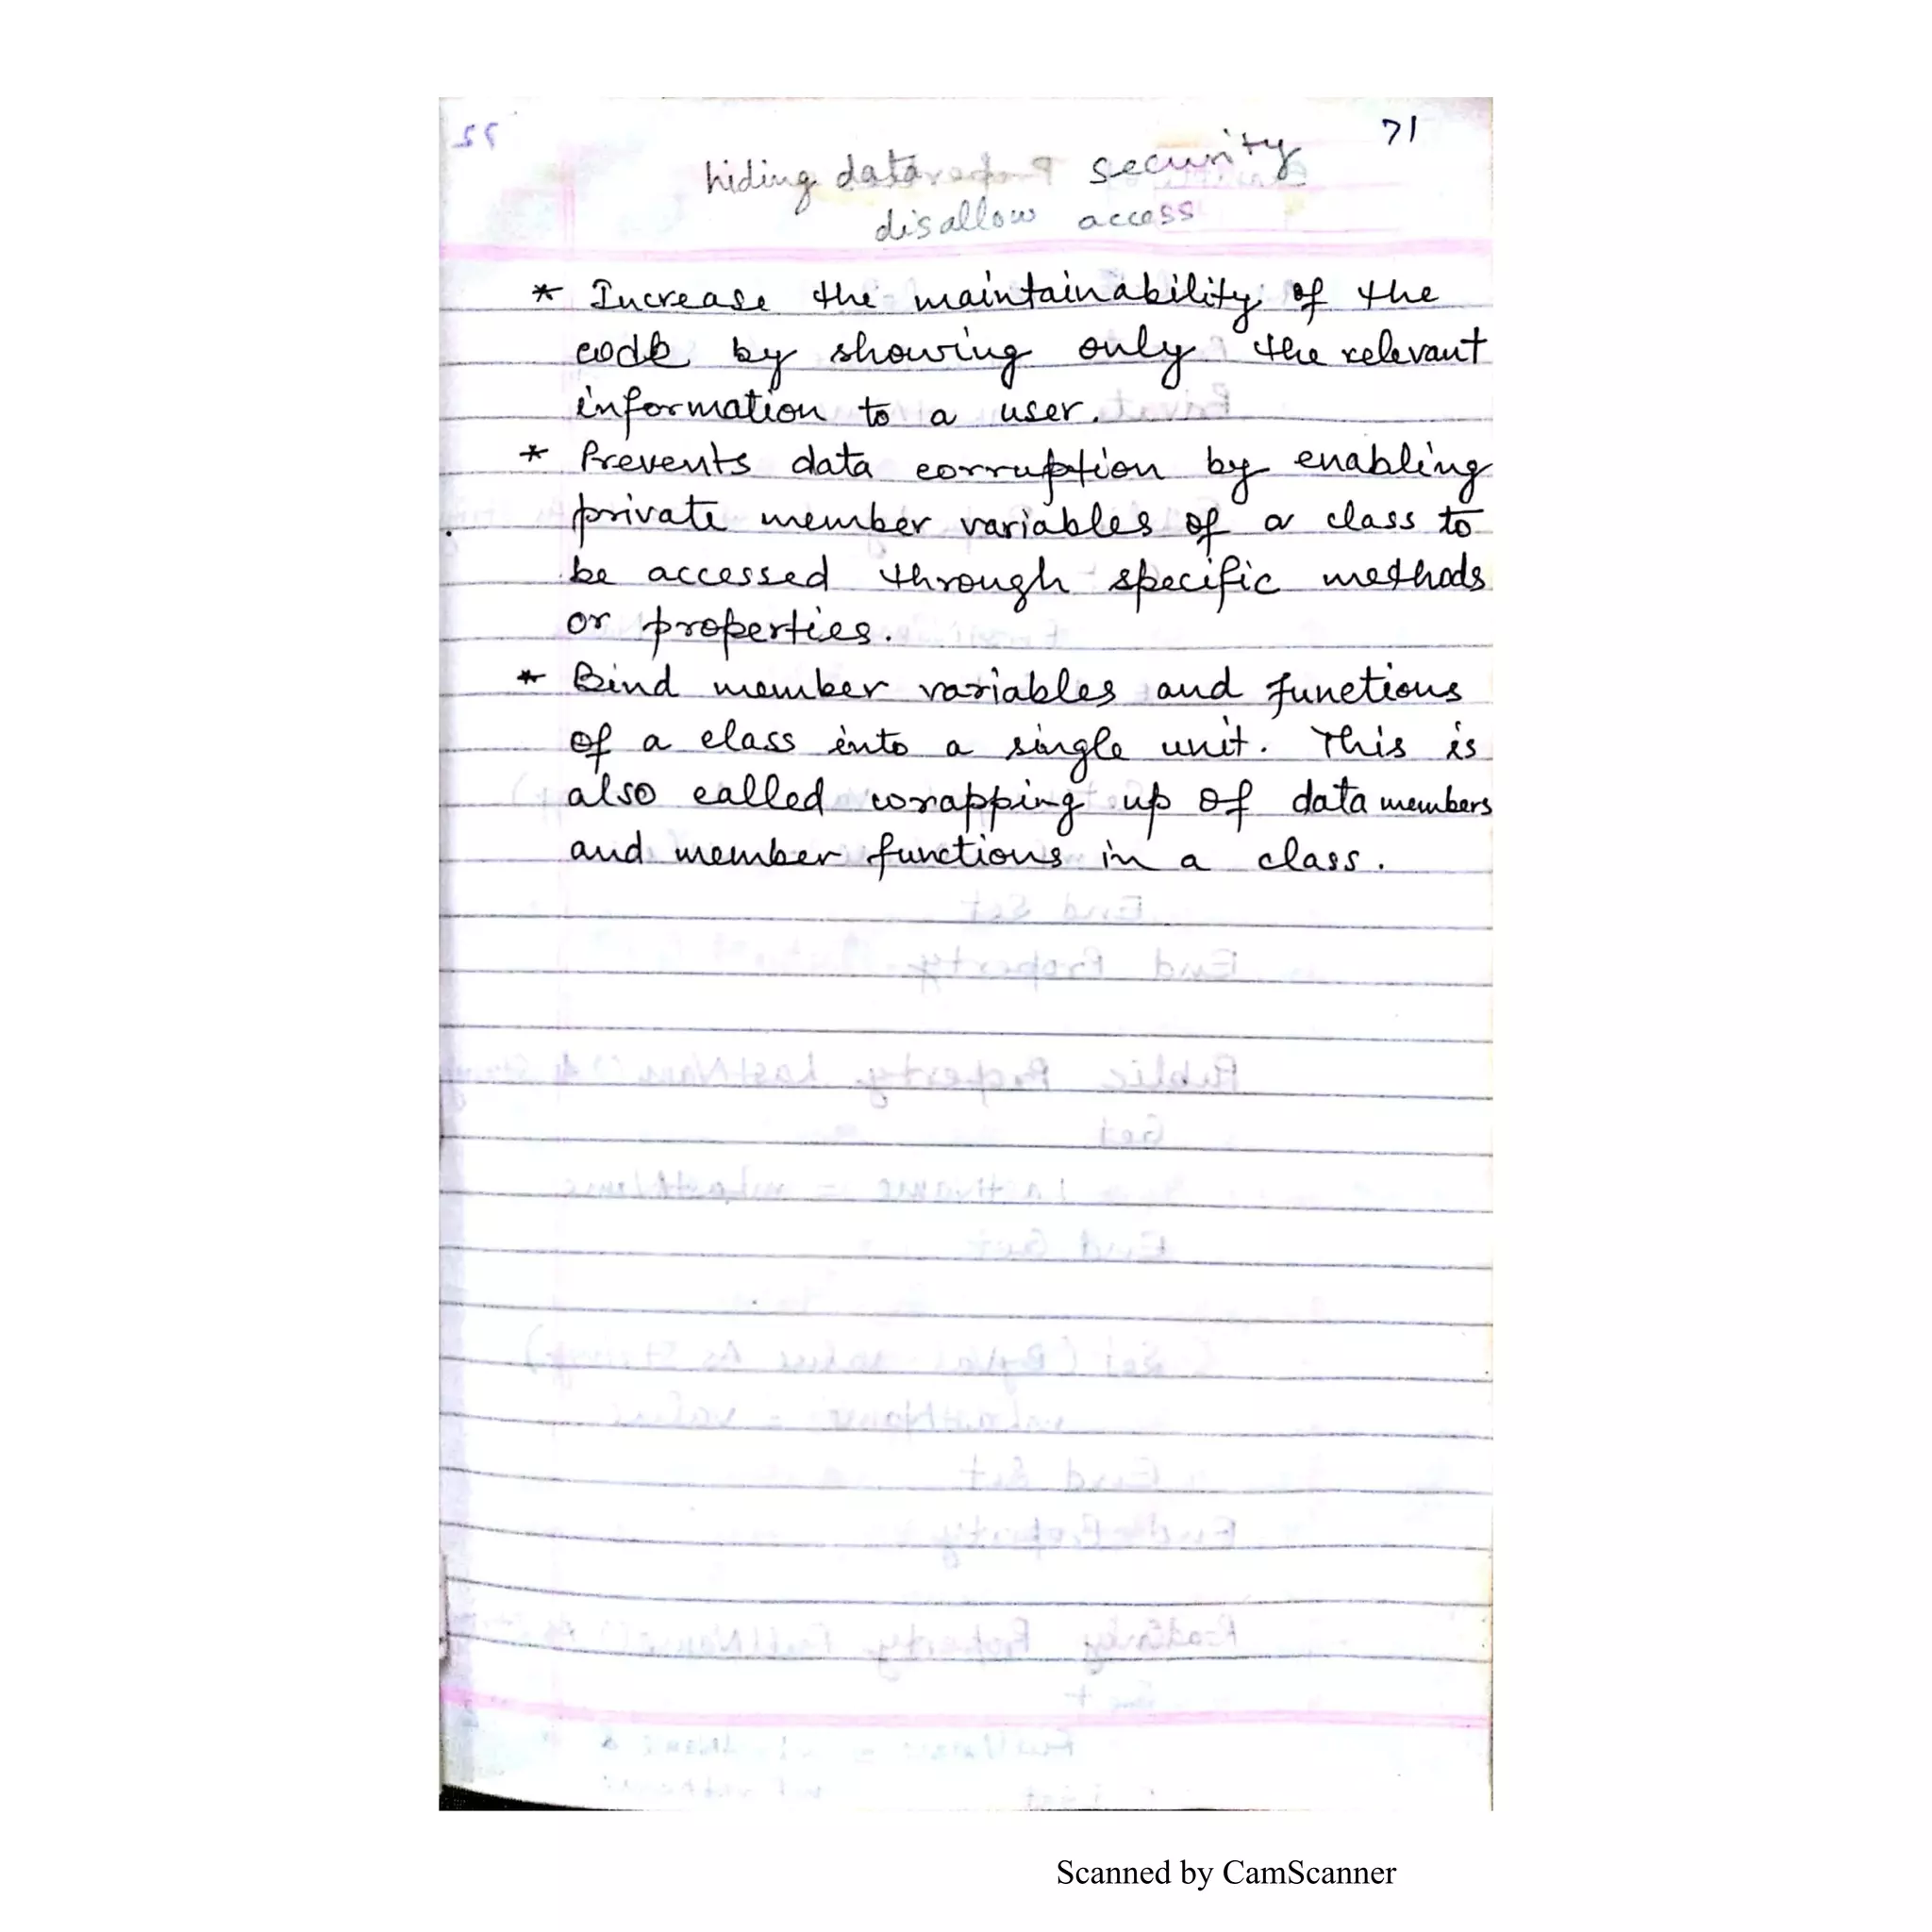 71
hiding data security
disallow access
* Increase the maintainability of the
code by showing only the relevant
information to a user.
* Prevents data corruption by enabling
private member variables of a class to
be accessed through specific methods
or properties.
* Bind member variables and functions
of a class into a single unit. This is
also called wrapping up of data members
and member functions in a class.
Scanned by CamScanner